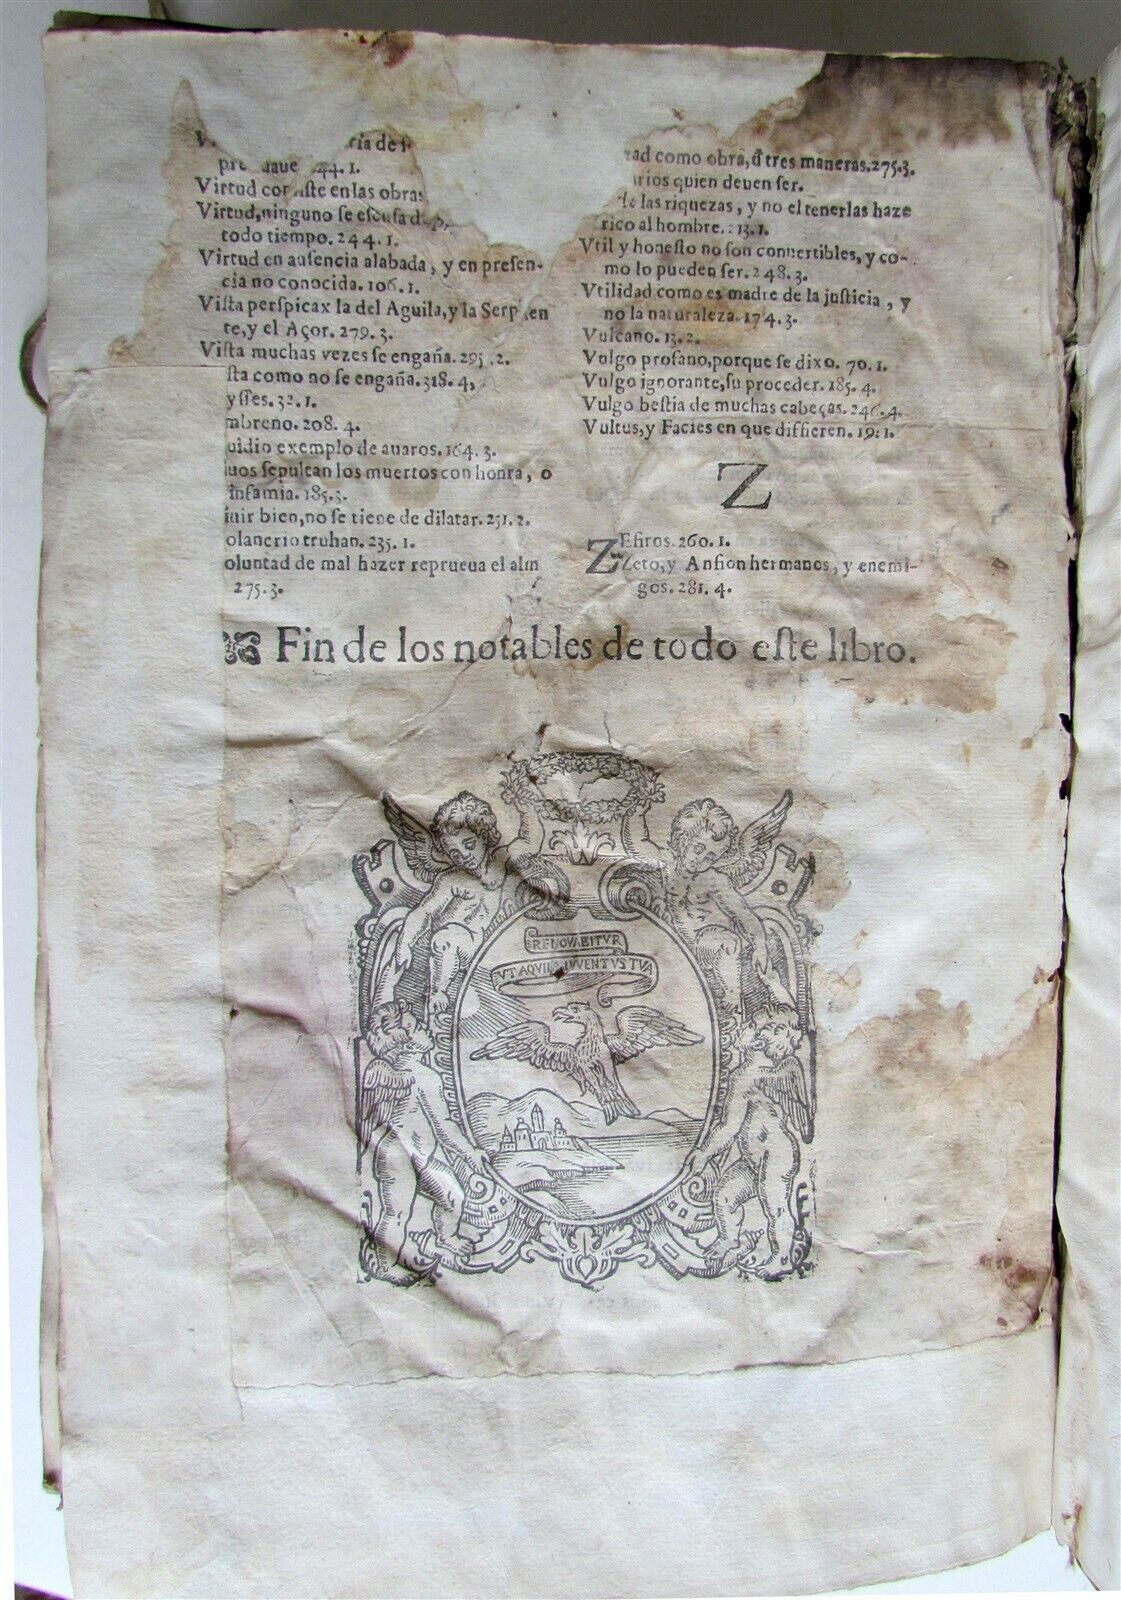 ria de
44. 1.
Virtud consiste en las obras
Virtud, ninguno se escusa de
todo tiempo. 244. 1.
Virtud en ausencia alabada, y en presen-
cia no conocida. 106. 1.
Vista perspicax la del Aguila, y la Serpien
te, y el Açor. 279. 3.
Vista muchas vezes se engaña. 295. 2.
sta como no se engaña. 318. 4,
ysses. 32. 1.
mbreno. 208. 4.
uidio exemplo de auaros. 164. 3.
uos sepultan los muertos con honra, o
infamia. 185. 3.
iuir bien, no se tiene de dilatar. 251. 2.
olanerio truhan. 235. 1.
oluntad de mal hazer reprueua el alm
275. 3.
dad como obra, d̃ tres maneras. 275. 3.
arios quien deuen ser.
de las riquezas, y no el tenerlas haze
rico al hombre. 213. 1.
Vtil y honesto no son conuertibles, y co-
mo lo pueden ser. 248. 3.
Vtilidad como es madre de la justicia, y
no la naturaleza. 174. 3.
Vulcano. 13. 2.
Vulgo profano, porque se dixo. 70. 1.
Vulgo ignorante, su proceder. 185. 4.
Vulgo bestia de muchas cabeças. 246. 4.
Vultus, y Facies en que diffieren. 19. 1.
Z
ZEfiros. 260. 1.
Zeto, y Anfion hermanos, y enemi-
gos. 281. 4.
Fin de los notables de todo este libro.
RENOVABITVR
VT AQVILA IVVENTVS TVA